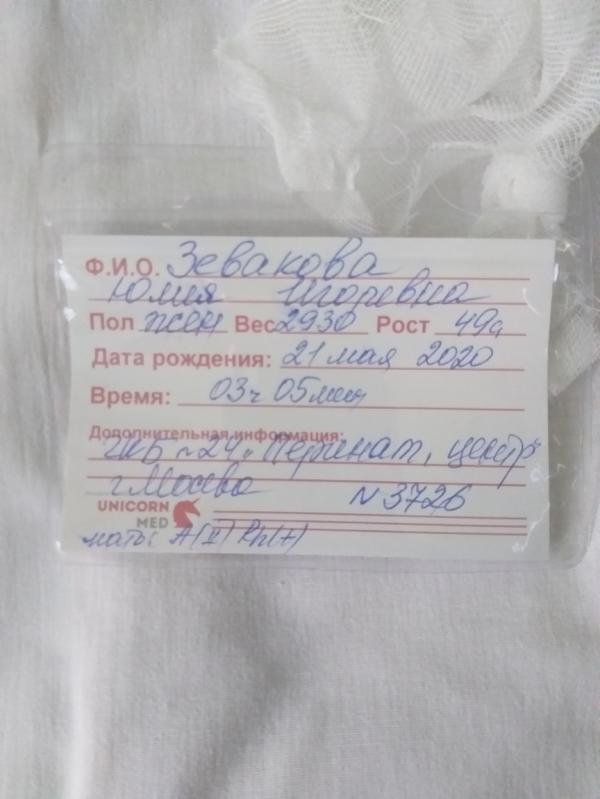 Ф.И.О. Зевакова
Юлия Игоревна
Пол жен Вес 2930 Рост 49с
Дата рождения: 21 мая 2020
Время: 03ч 05мин
Дополнительная информация:
ГКБ №24 "Перинат. центр"
г Москва N 3726
UNICORN
MED
мать: A(II) Rh(+)